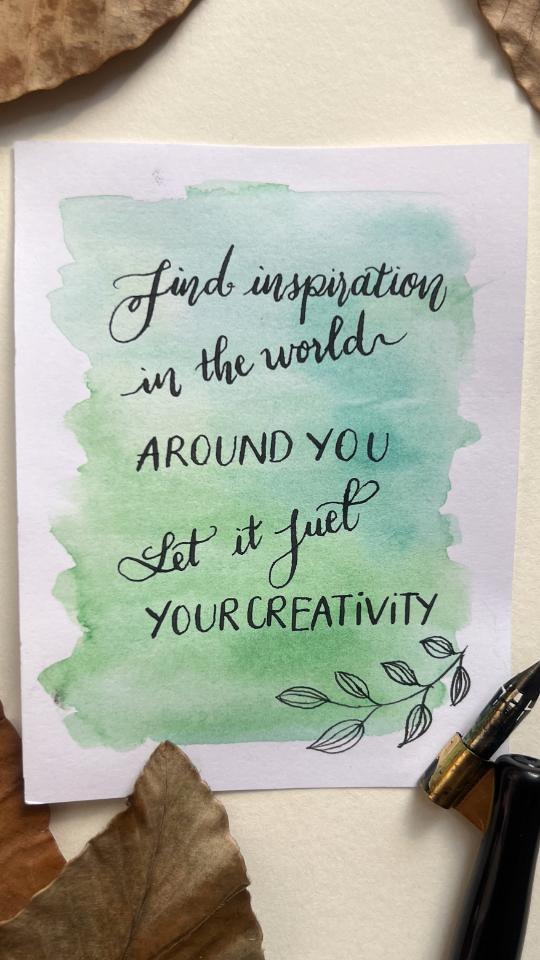 Find inspiration
in the world
AROUND YOU
Let it fuel
YOUR CREATIViTY